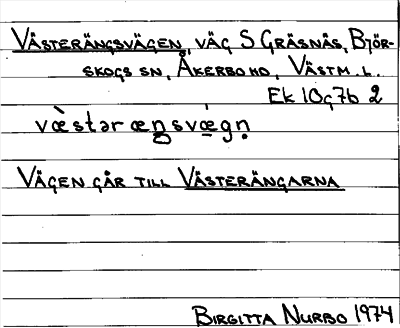 VÄSTERÄNGSVÄGEN, VÄG S GRÄSNÄS, BJÖR-
SKOGS SN, ÅKERBO HD, VÄSTM. L.
EK 10G7b 2
væ̀stəræŋsvǽgn̥
VÄGEN GÅR TILL VÄSTERÄNGARNA
BIRGITTA NURBO 1974